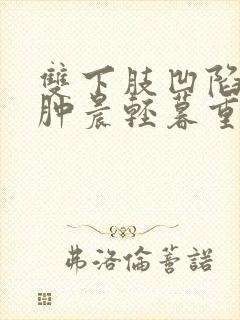 雙下肢凹陷
肿晨輕暮重
弗洛倫諾